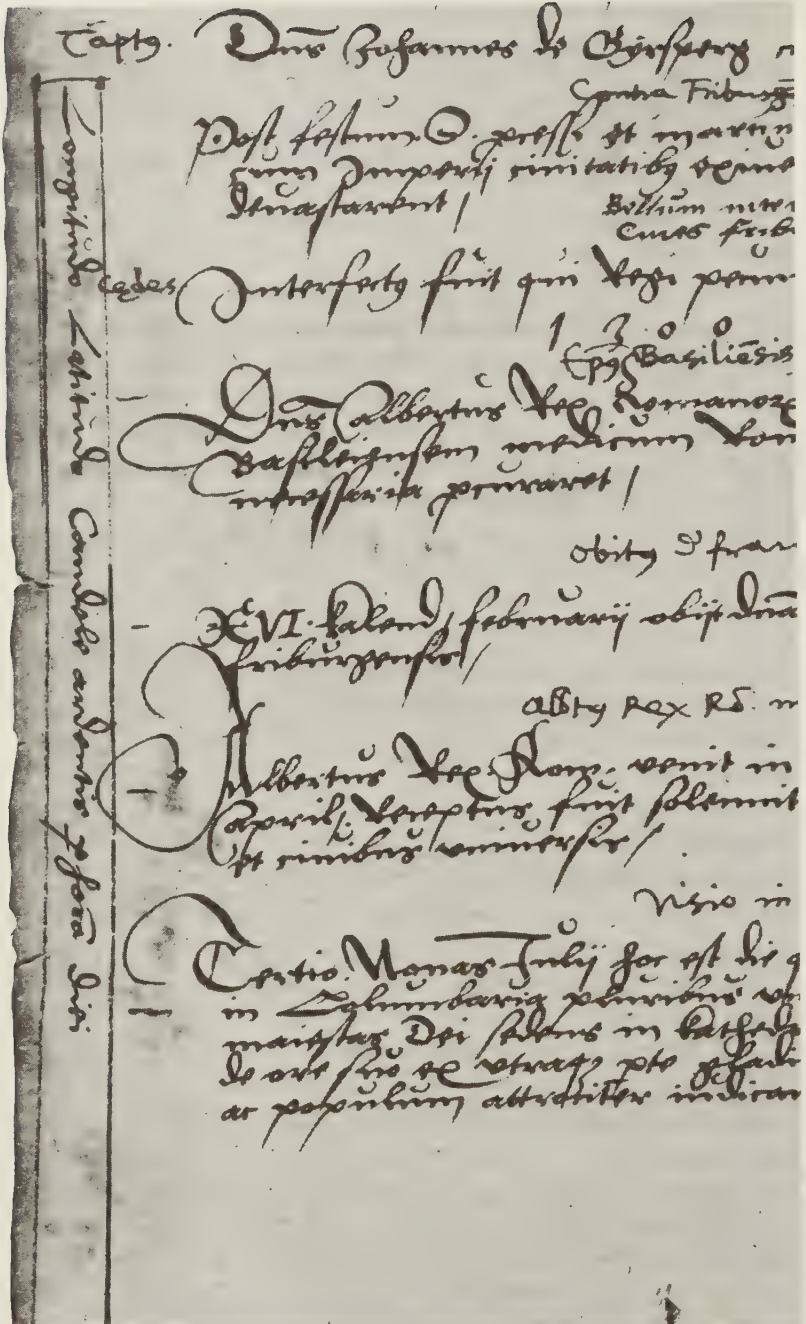 Captꝯ. Dn̄s Johannes de Gyrsperg
Contra Friburḡ
Post festum S. ꝓcessi et martin
cum Imperij ciuitatibꝯ exine
deuastarent /
Bellum inte
Ciues frib
Cędes Interfectꝯ fuit qui Regi pecun
1 3 0 0
Ep̄ꝯ Basiliēsis
Dn̄s Albertus Rex Romanorꝝ
Basileiensem medicum Rom
necessaria ꝓcuraret /
Obitꝯ d̄ fran
XVI. kalend. februarij obijt dn̄a
friburgensis /
Albtꝯ Rex Rō. in
Albertus Rex Rom. venit in
April. Receptus fuit solemnit
et ciuibus vniuersis /
Visio in
Tertio Nonas Julij hoc est die q
in Columbaria pluribus vi
maiestas Dei sedens in kathedr
de ore suo ex vtraqꝫ ꝑte gladi
ac populum attrociter iudicar
Longitudo Latitudo Candele ardentis ꝑ horā diei